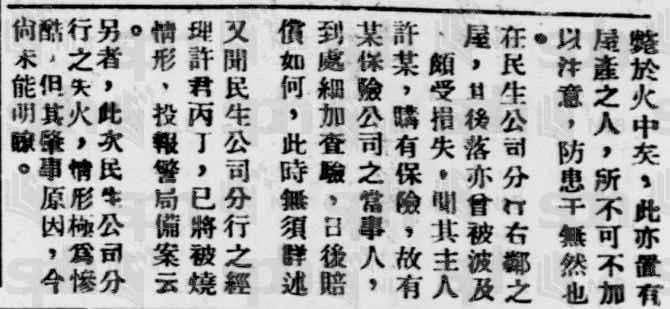 斃於火中矣，此亦置有
屋產之人，所不可不加
以注意，防患于無然也
。
在民生公司分行右鄰之
屋，其後落亦曾被波及
，頗受損失。聞其主人
許某，購有保險，故有
某保險公司之當事人，
到處細加查驗，日後賠
償如何，此時無須詳述
又聞民生公司分行之經
理許君丙丁，已將被燒
情形，投報警局備案云
另者，此次民生公司分
行之失火，情形極為慘
酷，但其肇事原因，今
尚未能明瞭。